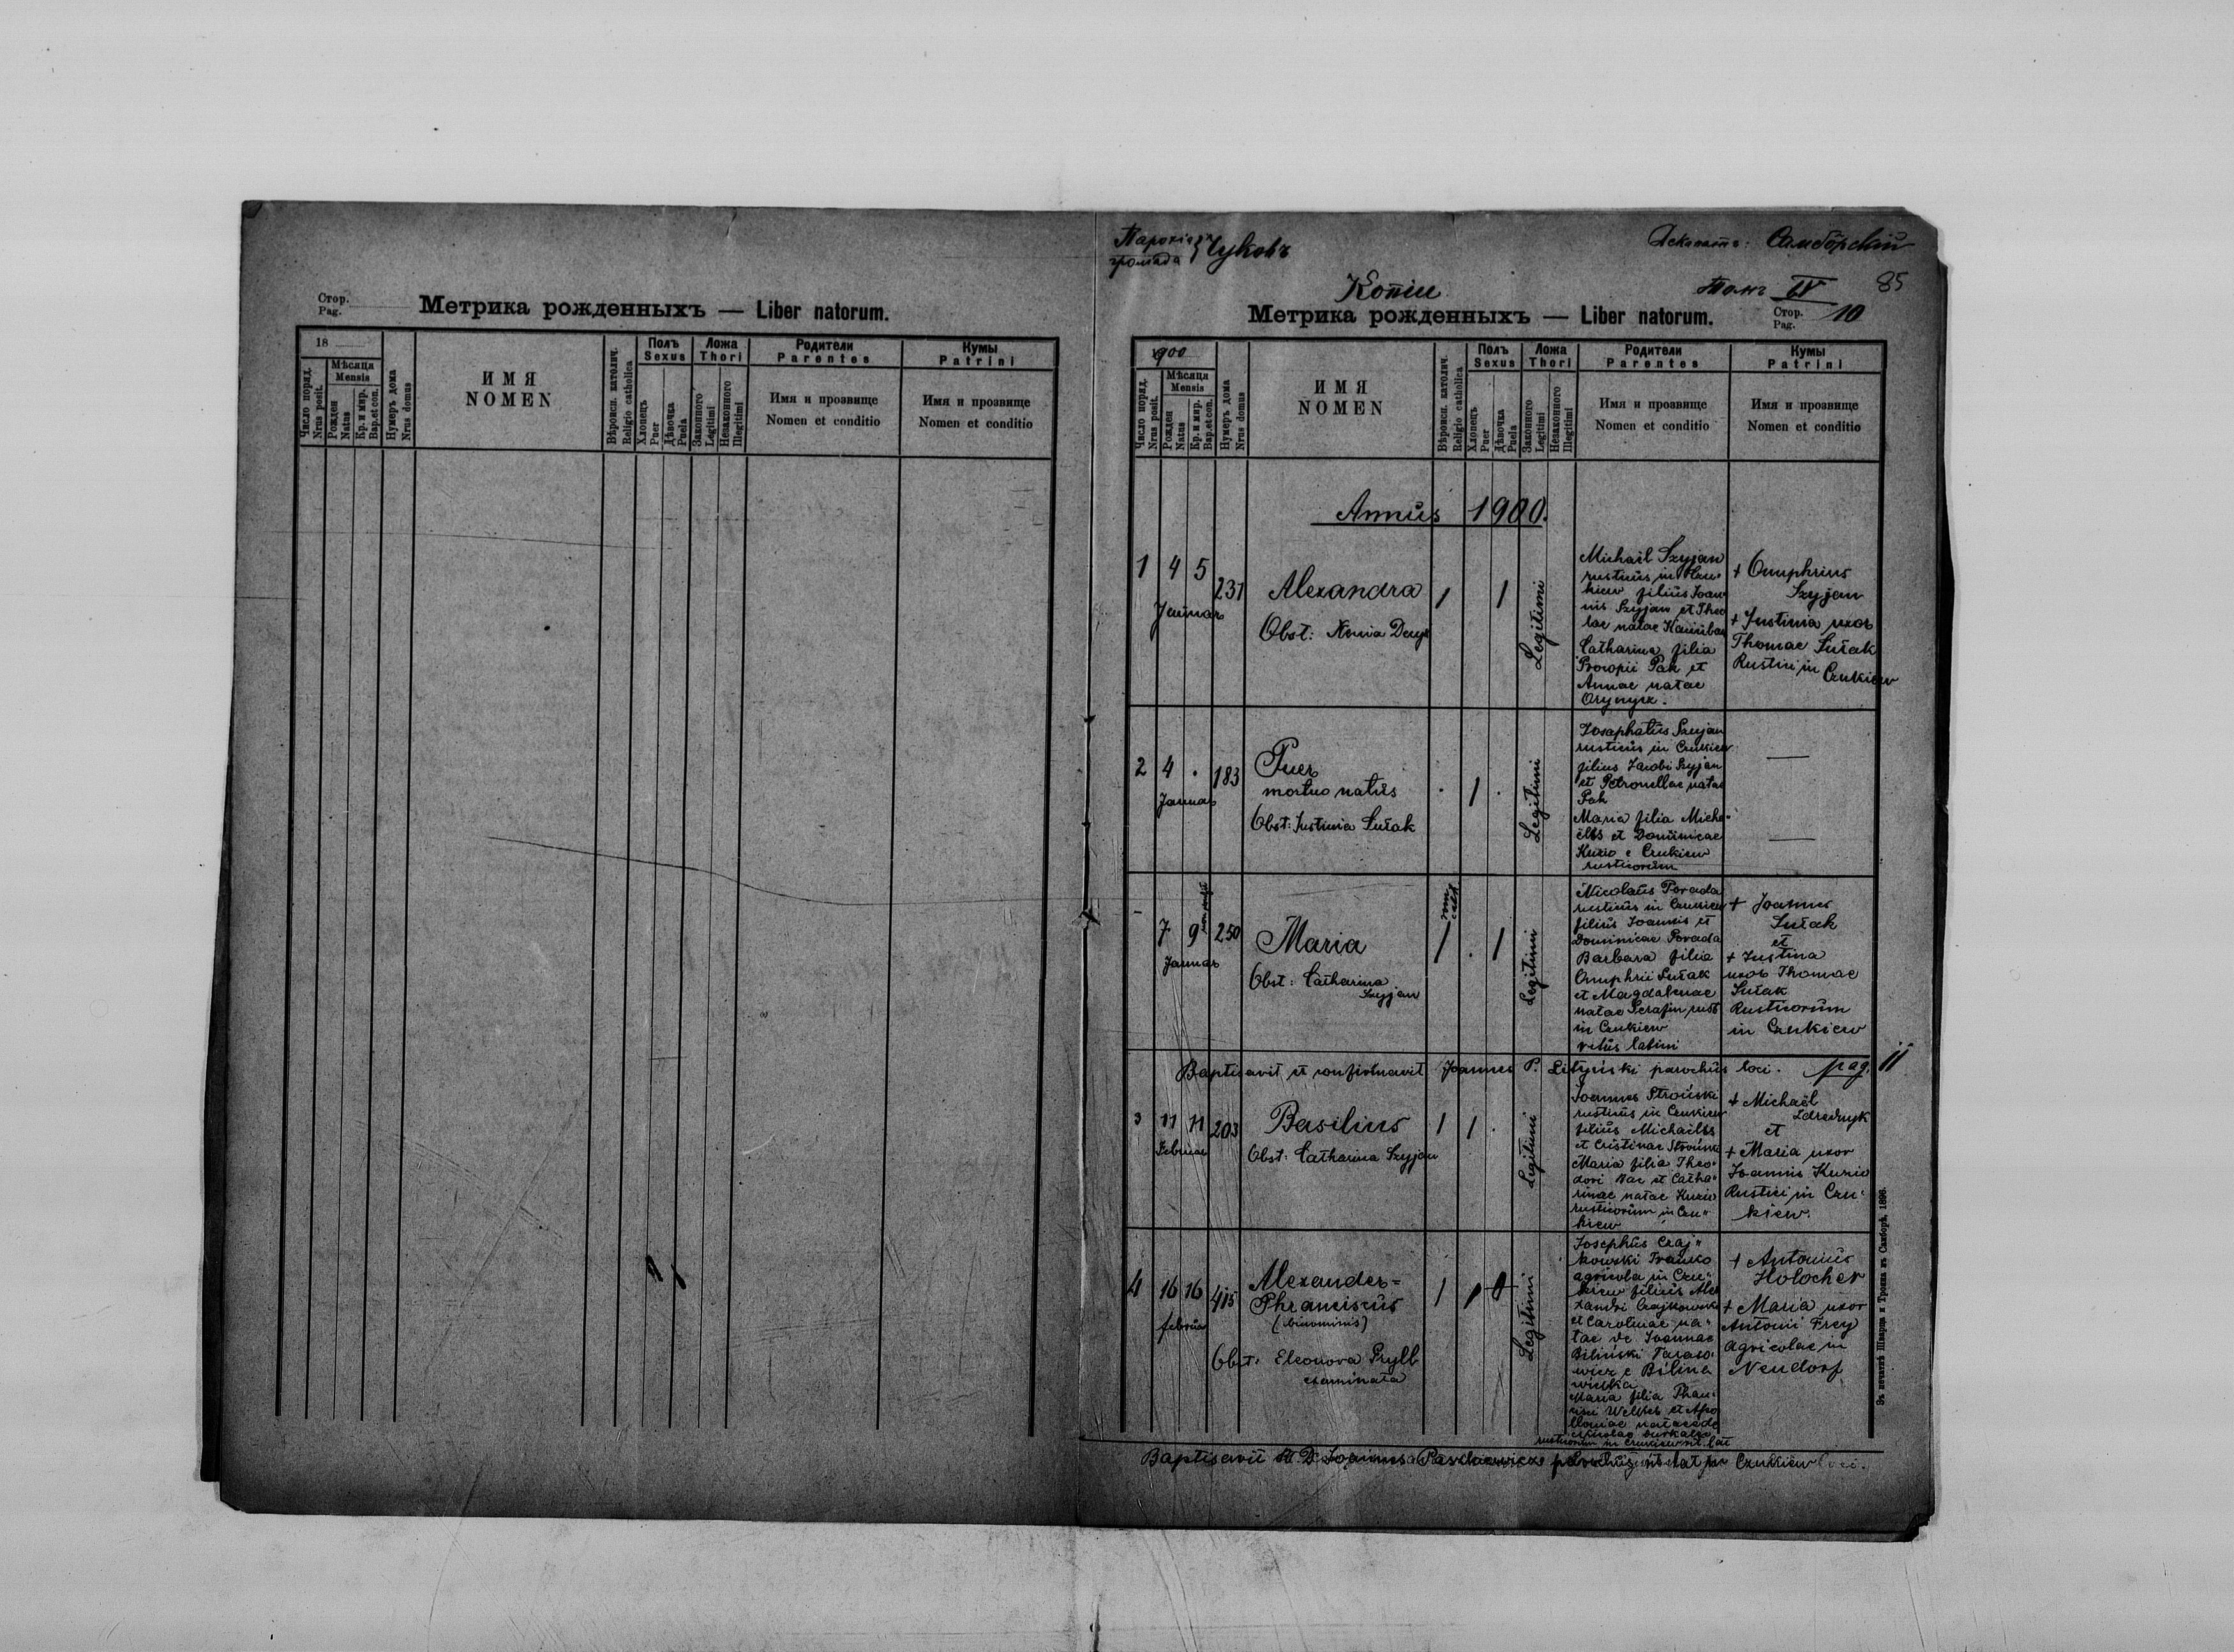 Стор.
Pag.
Метрика рожденныхъ — Liber natorum.
18
Число поряд.
Nrus posit.
Мѣсяця
Mensis
Рожден
Natus
Кр. и мир.
Bap. et con.
Нумеръ дома
Nrus domus
ИМЯ
NOMEN
Вѣроисп. католич.
Religio catholica
Полъ
Sexus
Хлопецъ
Puer
Дѣвочка
Puela
Ложа
Thori
Законного
Legitimi
Незаконного
Illegitimi
Родители
Parentes
Имя и прозвище
Nomen et conditio
Кумы
Patrini
Имя и прозвище
Nomen et conditio
Парохія
громада } Чуковъ
Деканатъ: Самборскій
Копія
Томъ IV
85
Метрика рожденныхъ — Liber natorum.
Стор.
Pag. 10
1900
Число поряд.
Nrus posit.
Мѣсяця
Mensis
Рожден
Natus
Кр. и мир.
Bap. et con.
Нумеръ дома
Nrus domus
ИМЯ
NOMEN
Вѣроисп. католич.
Religio catholica
Полъ
Sexus
Хлопецъ
Puer
Дѣвочка
Puela
Ложа
Thori
Законного
Legitimi
Незаконного
Illegitimi
Родители
Parentes
Имя и прозвище
Nomen et conditio
Кумы
Patrini
Имя и прозвище
Nomen et conditio
Annus 1900.
1 4 5
Januar
231
Alexandra
Obst: Anna Denys
1 1
Legitimi
Michaël Szyjan
rusticus in Czu-
kiew filius Joan
nis Szyjan et Thec
lae natae
Catharina filia
Procopii Pak et
Annae natae
+ Onuphrius
Szyjan
+ Justina uxor
Thomae Sułak
Rustici in Czukiew
2 4 . 183
Januar
Puer
mortuo natus
Obst: Justina Sułak
. 1 .
Legitimi
Josaphatus Szyjan
rusticus in Czukiew
filius Jacobi Szyjan
et Petronellae natae
Pak
Maria filia Micha-
elis et Dominicae
Kuzio e Czukiew
rusticorum
7 9 250
Januar
Maria
Obst: Catharina
Szyjan
1 . 1
Legitimi
Nicolaus Porada
rusticus in Czukiew
filius Joannis et
Dominicae Porada
Barbara filia
Onuphrii Sułak
et Magdalenae
natae Serafin, rust
in Czukiew
ritus latini
+ Joannes
Sułak
et
+ Justina
uxor Thomae
Sułak
Rusticorum
in Czukiew
Baptisavit et confirmavit Joannes P. Lityński parochus loci. pag. 11
3 11 11 203
Februar
Basilius
Obst: Catharina Szyjan
1 1 .
Legitimi
Joannes Stroński
rusticus in Czukiew
filius Michaëlis
et Cristinae Strońska
Maria filia Theo-
dori Nac et Catha-
rinae natae Kuzio
rusticorum in Czu-
kiew
+ Michaël
et
+ Maria uxor
Joannis Kuzio
Rustici in Czu-
kiew.
4 16 16 415
Februar
Alexander=
Phranciscus
(binominis)
Obst: Eleonora Prylb
examinata
1 1
Legitimi
Josephus Czaj-
kowski
agricola in Czu-
kiew filius Ale
xandri Czajkowski
et Carolinae na-
tae de Joannae
Biliński Taraso-
wicz e Bilina
wielka
Maria filia Phran-
cisci et Apo
lloniae natae de
rusticorum in Czukiew rit. lat
+ Antonius
Holocher
+ Maria uxor
Antonii Frey
agricolae in
Neudorf
Baptisavit Joannes parochus rit lat in Czukiew loci.
Зъ печатнѣ Шварца и Трояна въ Самборѣ, 1898.